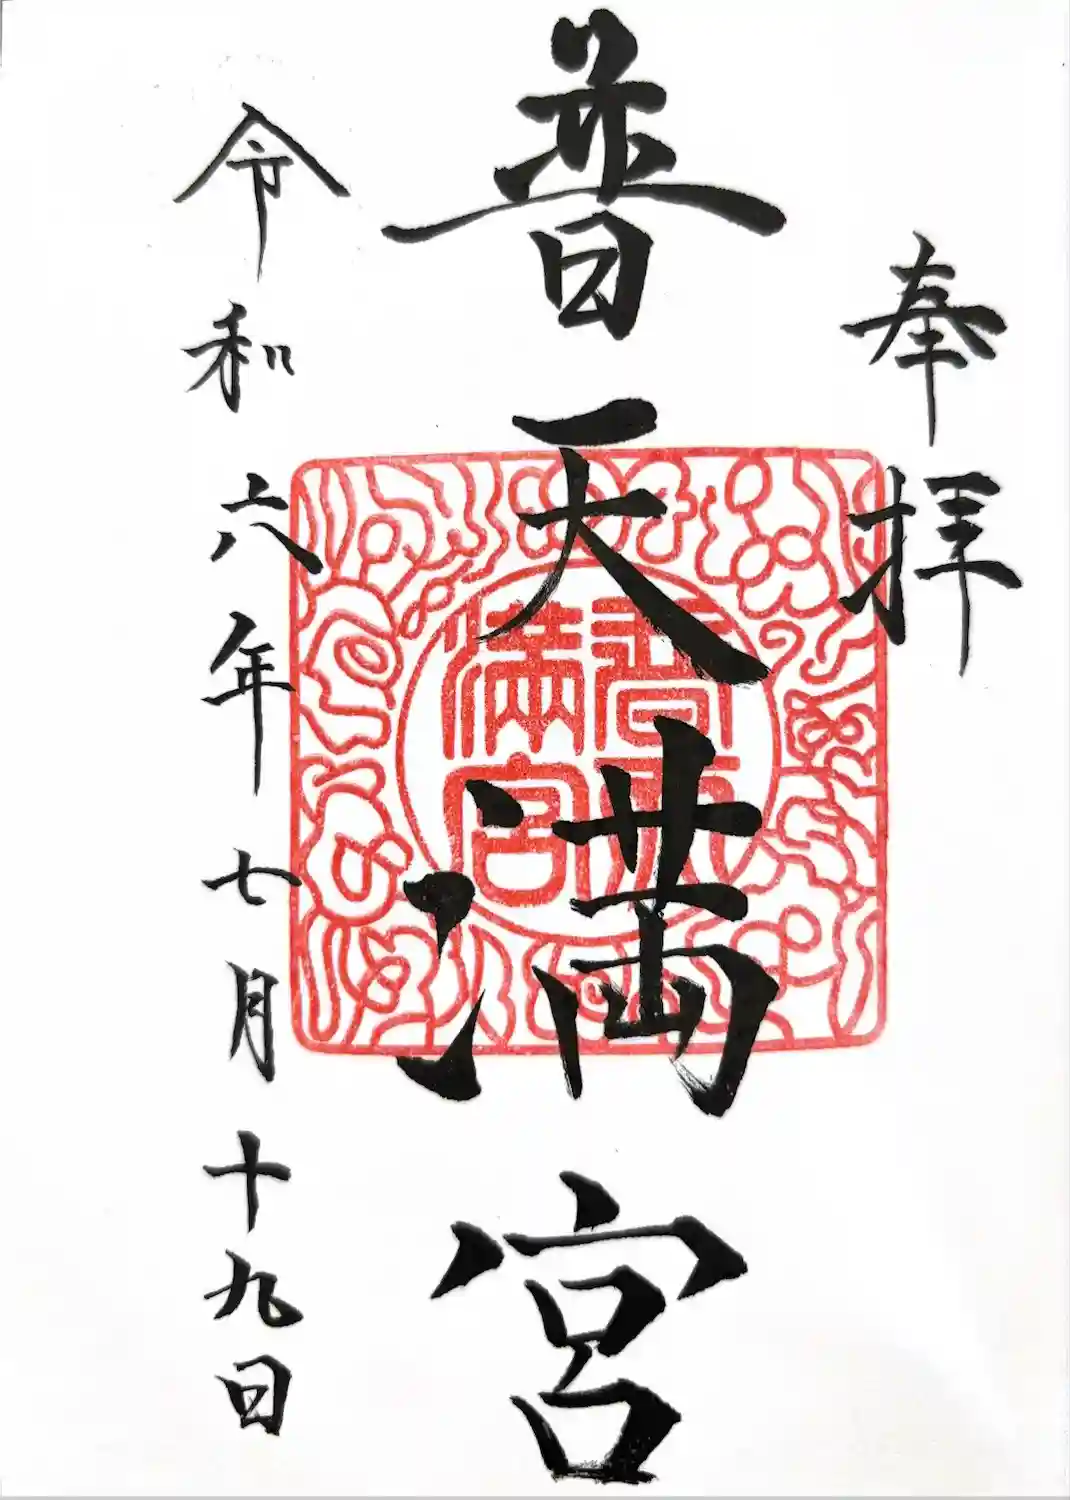 奉拝
普天満宮
普天
満宮
令和六年七月十九日